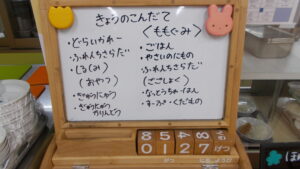 きょうのこんだて
・どらいかれー
・ふれんちさらだ
・(るくみ)
(おやつ)
・ぎゅうにゅう
・ぎゅうにゅうかりんとう
<ももぐみ>
・ごはん
・やさいのにもの
・ふれんちさらだ
(ごごしょく)
・なっとうちゃーはん
・すーぷ ・くだもの
0 1 2 7 げつ
がつ
にち
ようび